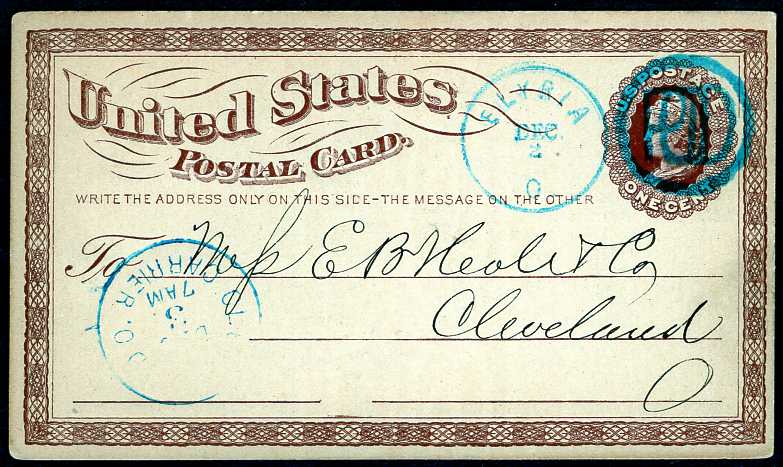 United States
POSTAL CARD.
U.S. POSTAGE
ONE CENT
ELYRIA
DEC.
O.
WRITE THE ADDRESS ONLY ON THIS SIDE-THE MESSAGE ON THE OTHER
To
E B & Co
Cleveland
O
CARRIER
7AM